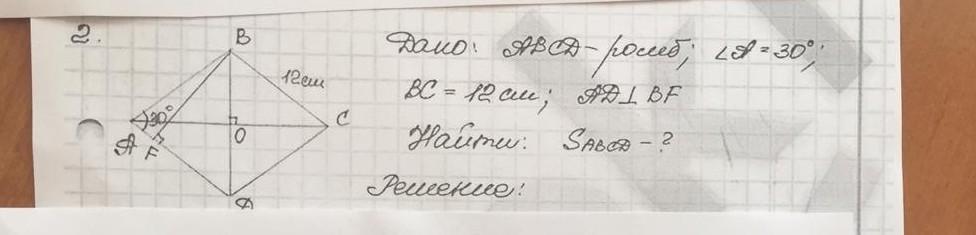 2.
B
12см
30°
A
F
O
C
D
Дано: ABCD - ромб; ∠A = 30°;
BC = 12 см; AD ⊥ BF
Найти: SABCD - ?
Решение: